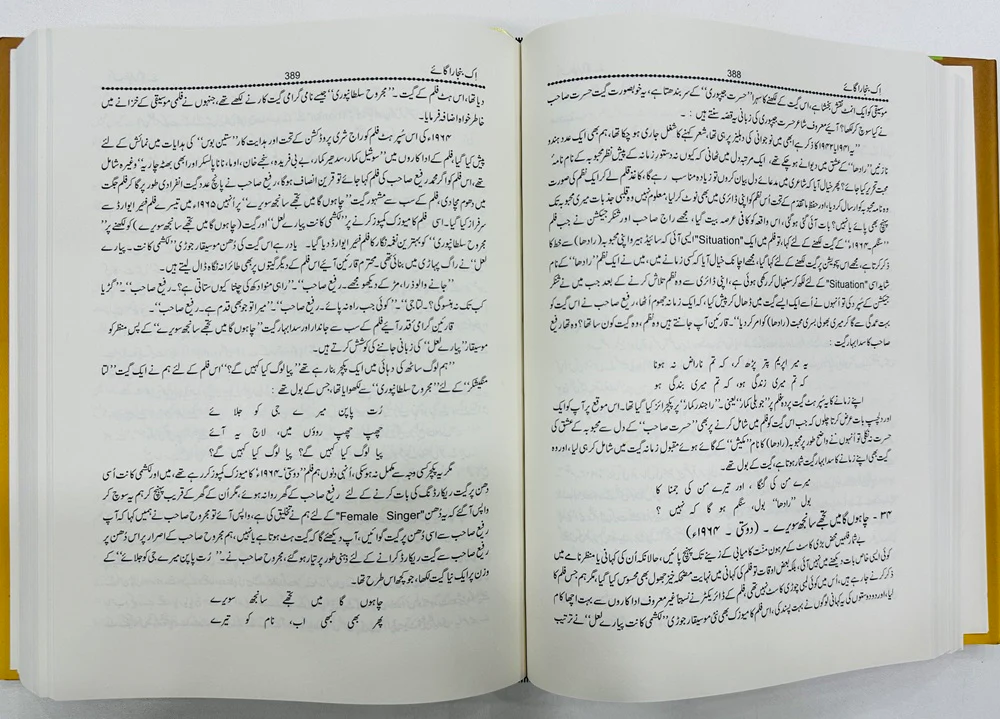 اک بنجارا گائے
388
موسیقی کو ایک انمٹ نقش بخشا ہے، اس گیت کے لکھنے کا سہرا ’’حسرت جیپوری‘‘ کے سر بندھتا ہے، یہ خوبصورت گیت حسرت صاحب
نے کیا سوچ کر لکھا؟ آیئے معروف شاعر حسرت جیپوری کی زبانی یہ قصہ سنتے ہیں : ۔
’’یہ ۱۹۴۱ یا ۱۹۴۲ کا ذکر ہے ابھی میں نوجوانی کی دہلیز پر ہی تھا، شعر کہنے کا شغل جاری ہو چکا تھا، ہم بھی ایک عدد ہندو
نازنیں ’’رادھا‘‘ کے عشق میں دیوانے ہو چکے تھے، ایک مرتبہ دل میں ٹھانی کہ کیوں نہ دستور زمانہ کے پیش نظر محبوبہ کے نام ’’نامہ‘‘
محبت تحریر کیا جائے؟ پھر خیال آیا کہ شاعری میں مدعائے دل بیان کروں تو زیادہ مناسب رہے گا، کاغذ قلم لے کر ایک نظم کی صورت
وہ نامہ محبوبہ کو ارسال کر دیا، اور حفظ ماتقدم کے تحت اُس نظم کو اپنی ڈائری میں بھی نوٹ کر لیا، معلوم نہیں وہ قلمی جذبات میری محبوبہ تک
پہنچ بھی پائے یا نہیں؟ بات آئی گئی ہو گئی، اس واقعہ کو کافی عرصہ بیت گیا، مجھے راج صاحب اور شنکر جیکشن نے جب فلم
’’سنگم۔ ۱۹۶۴ء‘‘ کے گیت لکھنے کے لئے کہا، تو فلم میں ایک "Situation" ایسی آئی کہ سائیڈ ہیرو اپنی محبوبہ (رادھا) سے خط کا
ذکر کرتا ہے، مجھے اس چویشن پر گیت لکھنے کے لئے کہا گیا، مجھے اچانک خیال آیا کہ کسی زمانے میں، میں نے ایک نظم ’’رادھا‘‘ کے نام
شاید اسی "Situation" کے لئے لکھ کر سنبھال کر رکھی ہوئی ہے، اپنی ڈائری سے وہ نظم تلاش کرنے کے بعد جب میں نے شنکر
جیکشن کے سپرد کی تو انہوں نے اُسے ایک ایسے گیت میں ڈھال کر پیش کیا، کہ ایک زمانہ جھوم اُٹھا، رفیع صاحب نے اس گیت کو
بہت عمدگی سے گا کر میری بھولی بسری محبت (رادھا) کو امر کر دیا‘‘۔ قارئین آپ جانتے ہیں وہ نظم، وہ گیت کون سا تھا؟ وہ تھا رفیع
صاحب کا سدابہار گیت : ۔
یہ میر اپریم پتر پڑھ کر، کہ تم ناراض نہ ہونا
کہ تم میری زندگی ہو، کہ تم میری بندگی ہو
اپنے زمانے کا یہ سُپر ہٹ گیت پردہ فلم پر ’’جوبلی کمار‘‘ یعنی۔ ’’راجندر کمار‘‘ پر پکچرائز کیا گیا تھا۔ اس موقع پر آپ کو ایک
اور دلچسپ بات عرض کرتا چلوں کہ جب اس گیت کو فلم میں شامل کرنے پر بھی ’’حسرت صاحب‘‘ کے دل سے محبوبہ کے عشق کی
حسرت نہ نکلی تو اُنہوں نے واضح طور پر محبوبہ (رادھا) کا نام ’’مکیش‘‘ کے گائے ہوئے مقبول زمانہ گیت میں شامل کر ہی لیا، اور وہ
گیت بھی اپنے زمانے کا سدابہار گیت شمار ہوتا ہے، گیت کے بول تھے۔
میرے من کی گنگا ، اور تیرے من کی جمنا کا
بول ’’رادھا‘‘ بول، سنگم ہو گا کہ نہیں ؟
۳۴ - چاہوں گا میں تجھے سانجھ سویرے ۔ (دوستی ۔ ۱۹۶۴ء)
بے شمار فلمیں محض بڑی کاسٹ کے مرہونِ منت کامیابی کے زینے تک پہنچ پائیں، حالانکہ اُن کی کہانی یا منظر نامے میں
کوئی ایسی خاص بات دیکھنے میں نہیں آئی، بلکہ بعض اوقات تو فلم کی کہانی میں نہایت مضحکہ خیز جھول بھی محسوس کیا گیا، مگر ہم جس فلم کا
ذکر کرنے جا رہے ہیں، اس میں کوئی لمبی چوڑی کاسٹ نہیں تھی، فلم کے ڈائریکٹر نے نسبتاً غیر معروف اداکاروں سے بہت اچھا کام
لیا، اور دو دوستوں کی یہ کہانی لوگوں نے بہت پسند کی، اس فلم کا میوزک بھی نئی موسیقار جوڑی ’’لکشمی کانت پیارے لعل‘‘ نے ترتیب
اک بنجارا گائے
389
دیا تھا، اس ہٹ فلم کے گیت ۔ ’’مجروح سلطانپوری‘‘ جیسے نامی گرامی گیت کار نے لکھے تھے، جنہوں نے فلمی موسیقی کے خزانے میں
خاطر خواہ اضافہ فرمایا۔
۱۹۶۴ء کی اس سُپر ہٹ فلم کو راج شری پروڈکشن کے تحت اور ہدایت کار ’’ستین بوس‘‘ کی ہدایات میں نمائش کے لئے
پیش کیا گیا، فلم کے اداکاروں میں ’’سوشیل کمار، سدھیر کمار، بے بی فریدہ، سنجے خان، اوما، نانا پالسیکر اور ابھی بھٹہ چاریہ‘‘ وغیرہ شامل
تھے، اس فلم کو اگر محمد رفیع صاحب کی فلم کہا جائے تو قرین انصاف ہو گا، رفیع صاحب نے پانچ عدد گیت انفرادی طور پر گا کر فلم جگت
میں دھوم مچا دی، فلم کے سب سے مشہور گیت ’’چاہوں گا میں تجھے سانجھ سویرے‘‘ پر اُنہیں ۱۹۶۵ میں تیسرے فلم فئیر ایوارڈ سے
سرفراز کیا گیا۔ اسی فلم کا میوزک کمپوز کرنے پر ’’لکشمی کانت پیارے لعل‘‘ اور گیت (چاہوں گا میں تجھے سانجھ سویرے) کو لکھنے پر
’’مجروح سلطانپوری‘‘ کو بہترین نغمہ نگار کا فلم فئیر ایوارڈ دیا گیا۔ یاد رہے اس گیت کی دُھن موسیقار جوڑی ’’لکشمی کانت۔ پیارے
لعل‘‘ نے راگ پہاڑی میں بنائی تھی۔ محترم قارئین آیئے اس فلم کے دیگر گیتوں پر بھی طائرانہ نگاہ ڈال لیتے ہیں۔
’’جانے والو ذرا، مڑ کے دیکھو مجھے۔ رفیع صاحب‘‘۔ ’’راہی منوا دکھ کی چنتا کیوں ستاتی ہے؟۔ رفیع صاحب‘‘۔ ’’گڑیا
کب تک نہ ہنسو گی؟۔ لتا جی‘‘۔ ’’کوئی جب راہ نہ پائے۔ رفیع صاحب‘‘۔ ’’میرا تو جو بھی قدم ہے۔ رفیع صاحب‘‘۔
قارئین گرامی قدر آیئے فلم کے سب سے جاندار اور سدابہار گیت ’’چاہوں گا میں تجھے سانجھ سویرے‘‘ کے پس منظر کو
موسیقار ’’پیارے لعل‘‘ کی زبانی جاننے کی کوشش کرتے ہیں۔
’’ہم لوگ ساٹھ کی دہائی میں ایک پکچر بنا رہے تھے ’’پیا لوگ کیا کہیں گے؟‘‘ اس فلم کے لئے ہم نے ایک گیت ’’لتا
منگیشکر‘‘ کے لئے ’’مجروح سلطانپوری‘‘ سے لکھوایا تھا، جس کے بول تھے :
رُت پاپن میرے جی کو جلائے
چھپ چھپ روؤں میں، لاج یہ آئے
پیا لوگ کیا کہیں گے؟ پیا لوگ کیا کہیں گے؟
مگر یہ پکچر کسی وجہ سے مکمل نہ ہو سکی، اُنہی دنوں ہم فلم ’’دوستی۔ ۱۹۶۴ء‘‘ کا میوزک کمپوز کر رہے تھے، میں اور لکشمی کانت اُسی
دھن پر گیت ریکارڈنگ کی بات کرنے کے لئے رفیع صاحب کے گھر روانہ ہوئے، مگر اُن کے گھر کے قریب پہنچ کر ہم یہ سوچ کر
واپس آ گئے کہ یہ دُھن "Female Singer" کے لئے ہم نے تخلیق کی ہے، واپس آئے تو مجروح صاحب نے ہمیں کہا کہ آپ
رفیع صاحب سے اسی دُھن پر گیت گوائیں، آپ دیکھئے گا کہ گیت ہٹ ہوتا ہے یا نہیں، ہم مجروح صاحب کے اصرار پر اس دُھن پر
رفیع صاحب سے گیت ریکارڈ کرانے کے لئے ذہنی طور پر تیار ہو گئے، مجروح صاحب نے۔ ’’رُت پاپن میرے جی کو جلائے‘‘ کے
وزن پر ایک نیا گیت لکھا، جو کچھ اس طرح تھا۔
چاہوں گا میں تجھے سانجھ سویرے
پھر بھی کبھی اب، نام کو تیرے